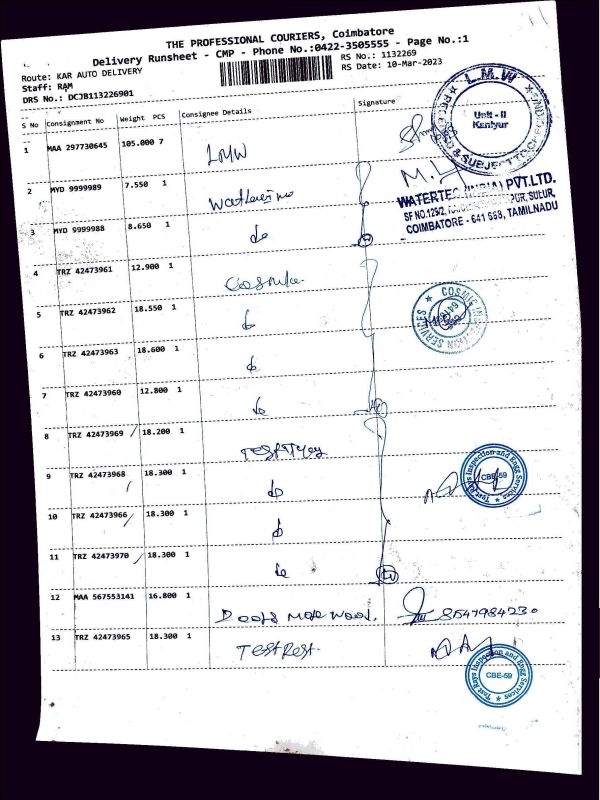 THE PROFESSIONAL COURIERS, Coimbatore
Delivery Runsheet - CMP - Phone No.:0422-3505555 - Page No.:1
Route: KAR AUTO DELIVERY
RS No.: 1132269
Staff: RAM
RS Date: 10-Mar-2023
DRS No.: DCJB113226901
S No Consignment No Weight PCS Consignee Details Signature
1 MAA 297730645 105.000 7 LMW
L.M.W
Unit - II
Kaniyur
2 MYD 9999989 7.550 1
WATERTEC (INDIA) PVT.LTD.
SF NO.129/2, PUR, SULUR,
COIMBATORE - 641 668, TAMILNADU
3 MYD 9999988 8.650 1 do
4 TRZ 42473961 12.900 1
5 TRZ 42473962 18.550 1 do
COSMIC INSPECTION SERVICES
6 TRZ 42473963 18.600 1 do
7 TRZ 42473960 12.800 1 do
8 TRZ 42473969 18.200 1
9 TRZ 42473968 18.300 1 do
Test Rays Inspection and Engg Services
CBE-59
10 TRZ 42473966 18.300 1 do
11 TRZ 42473970 18.300 1 do
12 MAA 567553141 16.800 1
13 TRZ 42473965 18.300 1
Test Rays Inspection and Engg Services
CBE-59